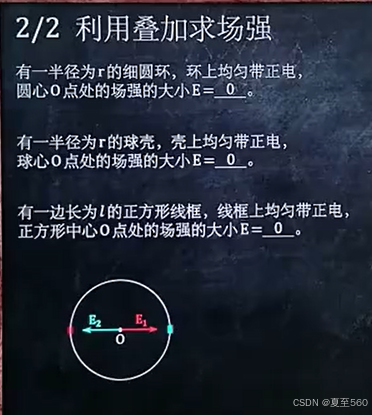 2/2 利用叠加求场强
有一半径为r的细圆环，环上均匀带正电，
圆心O点处的场强的大小E=0。
有一半径为r的球壳，壳上均匀带正电，
球心O点处的场强的大小E=0。
有一边长为l的正方形线框，线框上均匀带正电，
正方形中心O点处的场强的大小E=0。
E₂ E₁
O
CSDN @夏至560